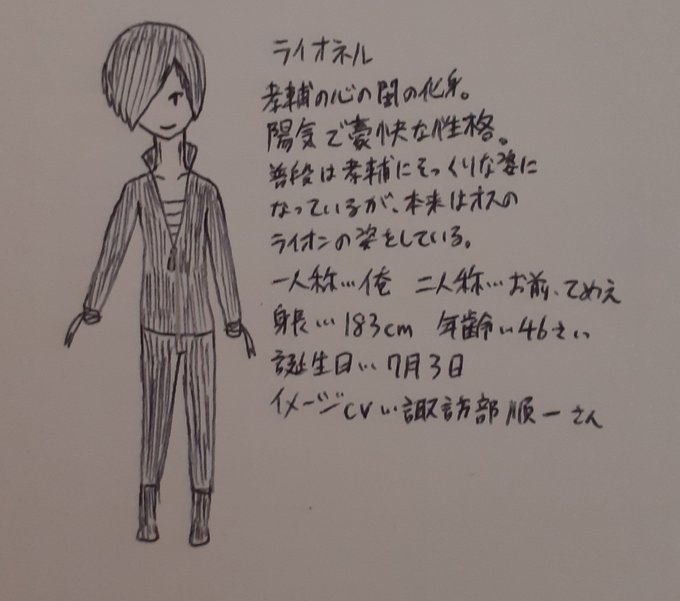 ライオネル
孝輔の心の闇の化身。
陽気で豪快な性格。
普段は孝輔にそっくりな姿に
なっているが、本来はオスの
ライオンの姿をしている。
一人称…俺 二人称…お前、てめえ
身長…183cm 年齢…46さい
誕生日…7月3日
イメージCV…諏訪部順一さん